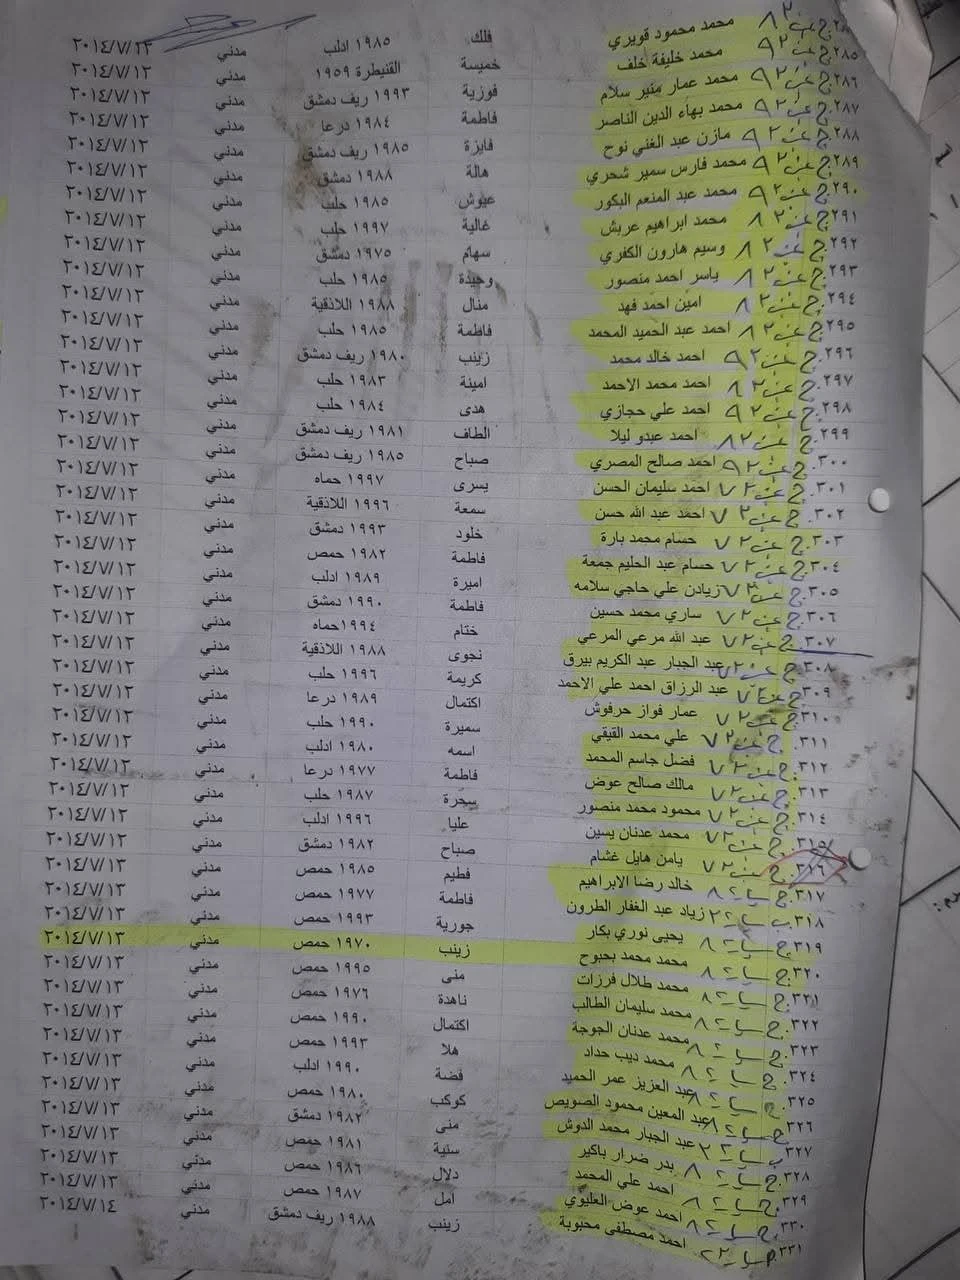 ٢٨٤. محمد محمود قويري فلك ١٩٨٥ ادلب مدني ٢٠١٤/٧/١٣
٢٨٥. محمد خليفة خلف خميسة القنيطرة ١٩٥٩ مدني ٢٠١٤/٧/١٣
٢٨٦. محمد عمار منير سلام فوزية ١٩٩٣ ريف دمشق مدني ٢٠١٤/٧/١٣
٢٨٧. محمد بهاء الدين الناصر فاطمة ١٩٨٤ درعا مدني ٢٠١٤/٧/١٣
٢٨٨. مازن عبد الغني نوح فايزة ١٩٨٥ ريف دمشق مدني ٢٠١٤/٧/١٣
٢٨٩. محمد فارس سمير شحري هالة ١٩٨٨ دمشق مدني ٢٠١٤/٧/١٣
٢٩٠. محمد عبد المنعم البكور عيوش ١٩٨٥ حلب مدني ٢٠١٤/٧/١٣
٢٩١. محمد ابراهيم عريش غالية ١٩٩٧ حلب مدني ٢٠١٤/٧/١٣
٢٩٢. وسيم هارون الكفري سهام ١٩٧٥ دمشق مدني ٢٠١٤/٧/١٣
٢٩٣. ياسر احمد منصور وحيدة ١٩٨٥ حلب مدني ٢٠١٤/٧/١٣
٢٩٤. امين احمد فهد منال ١٩٨٨ اللاذقية مدني ٢٠١٤/٧/١٣
٢٩٥. احمد عبد الحميد المحمد فاطمة ١٩٨٥ حلب مدني ٢٠١٤/٧/١٣
٢٩٦. احمد خالد محمد زينب ١٩٨٠ ريف دمشق مدني ٢٠١٤/٧/١٣
٢٩٧. احمد محمد الاحمد امينة ١٩٨٣ حلب مدني ٢٠١٤/٧/١٣
٢٩٨. احمد علي حجازي هدى ١٩٨٤ حلب مدني ٢٠١٤/٧/١٣
٢٩٩. احمد عبدو ليلا الطاف ١٩٨١ ريف دمشق مدني ٢٠١٤/٧/١٣
٣٠٠. احمد صالح المصري صباح ١٩٨٥ ريف دمشق مدني ٢٠١٤/٧/١٣
٣٠١. احمد سليمان الحسن يسرى ١٩٩٧ حماه مدني ٢٠١٤/٧/١٣
٣٠٢. احمد عبد الله حسن سمعة ١٩٩٦ اللاذقية مدني ٢٠١٤/٧/١٣
٣٠٣. حسام محمد بارة خلود ١٩٩٣ دمشق مدني ٢٠١٤/٧/١٣
٣٠٤. حسام عبد الحليم جمعة فاطمة ١٩٨٢ حمص مدني ٢٠١٤/٧/١٣
٣٠٥. زيادن علي حاجي سلامه اميرة ١٩٨٩ ادلب مدني ٢٠١٤/٧/١٣
٣٠٦. ساري محمد حسين فاطمة ١٩٩٠ دمشق مدني ٢٠١٤/٧/١٣
٣٠٧. عبد الله مرعي المرعي ختام ١٩٩٤حماه مدني ٢٠١٤/٧/١٣
٣٠٨. عبد الجبار عبد الكريم بيرق نجوى ١٩٨٨ اللاذقية مدني ٢٠١٤/٧/١٣
٣٠٩. عبد الرزاق احمد علي الاحمد كريمة ١٩٩٦ حلب مدني ٢٠١٤/٧/١٣
٣١٠. عمار فواز حرفوش اكتمال ١٩٨٩ درعا مدني ٢٠١٤/٧/١٣
٣١١. علي محمد القيقي سميرة ١٩٩٠ حلب مدني ٢٠١٤/٧/١٣
٣١٢. فضل جاسم المحمد اسمه ١٩٨٠ ادلب مدني ٢٠١٤/٧/١٣
٣١٣. مالك صالح عوض فاطمة ١٩٧٧ درعا مدني ٢٠١٤/٧/١٣
٣١٤. محمود محمد منصور سحرة ١٩٨٧ حلب مدني ٢٠١٤/٧/١٣
٣١٥. محمد عدنان يسين عليا ١٩٩٦ ادلب مدني ٢٠١٤/٧/١٣
٣١٦. يامن هايل غشام صباح ١٩٨٢ دمشق مدني ٢٠١٤/٧/١٣
٣١٧. خالد رضا الابراهيم فطيم ١٩٨٥ حمص مدني ٢٠١٤/٧/١٣
٣١٨. زياد عبد الغفار الطرون فاطمة ١٩٧٧ حمص مدني ٢٠١٤/٧/١٣
٣١٩. يحيى نوري بكار جورية ١٩٩٣ حمص مدني ٢٠١٤/٧/١٣
٣٢٠. محمد محمد بحبوح زينب ١٩٧٠ حمص مدني ٢٠١٤/٧/١٣
٣٢١. محمد طلال فرزات منى ١٩٩٥ حمص مدني ٢٠١٤/٧/١٣
٣٢٢. محمد سليمان الطالب ناهدة ١٩٧٦ حمص مدني ٢٠١٤/٧/١٣
٣٢٣. محمد عدنان الجوجة اكتمال ١٩٩٠ حمص مدني ٢٠١٤/٧/١٣
٣٢٤. محمد ديب حداد هلا ١٩٩٣ حمص مدني ٢٠١٤/٧/١٣
٣٢٥. عبد العزيز عمر الحميد فضة ١٩٩٠ ادلب مدني ٢٠١٤/٧/١٣
٣٢٦. عبد المعين محمود الصويص كوكب ١٩٨٠ حمص مدني ٢٠١٤/٧/١٣
٣٢٧. عبد الجبار محمد الدوش منى ١٩٨٢ دمشق مدني ٢٠١٤/٧/١٣
٣٢٨. بدر ضرار باكير سنية ١٩٨١ حمص مدني ٢٠١٤/٧/١٣
٣٢٩. احمد علي المحمد دلال ١٩٨٦ حمص مدني ٢٠١٤/٧/١٣
٣٣٠. احمد عوض العليوي امل ١٩٨٧ حمص مدني ٢٠١٤/٧/١٣
٣٣١. احمد مصطفى محبوبة زينب ١٩٨٨ ريف دمشق مدني ٢٠١٤/٧/١٤